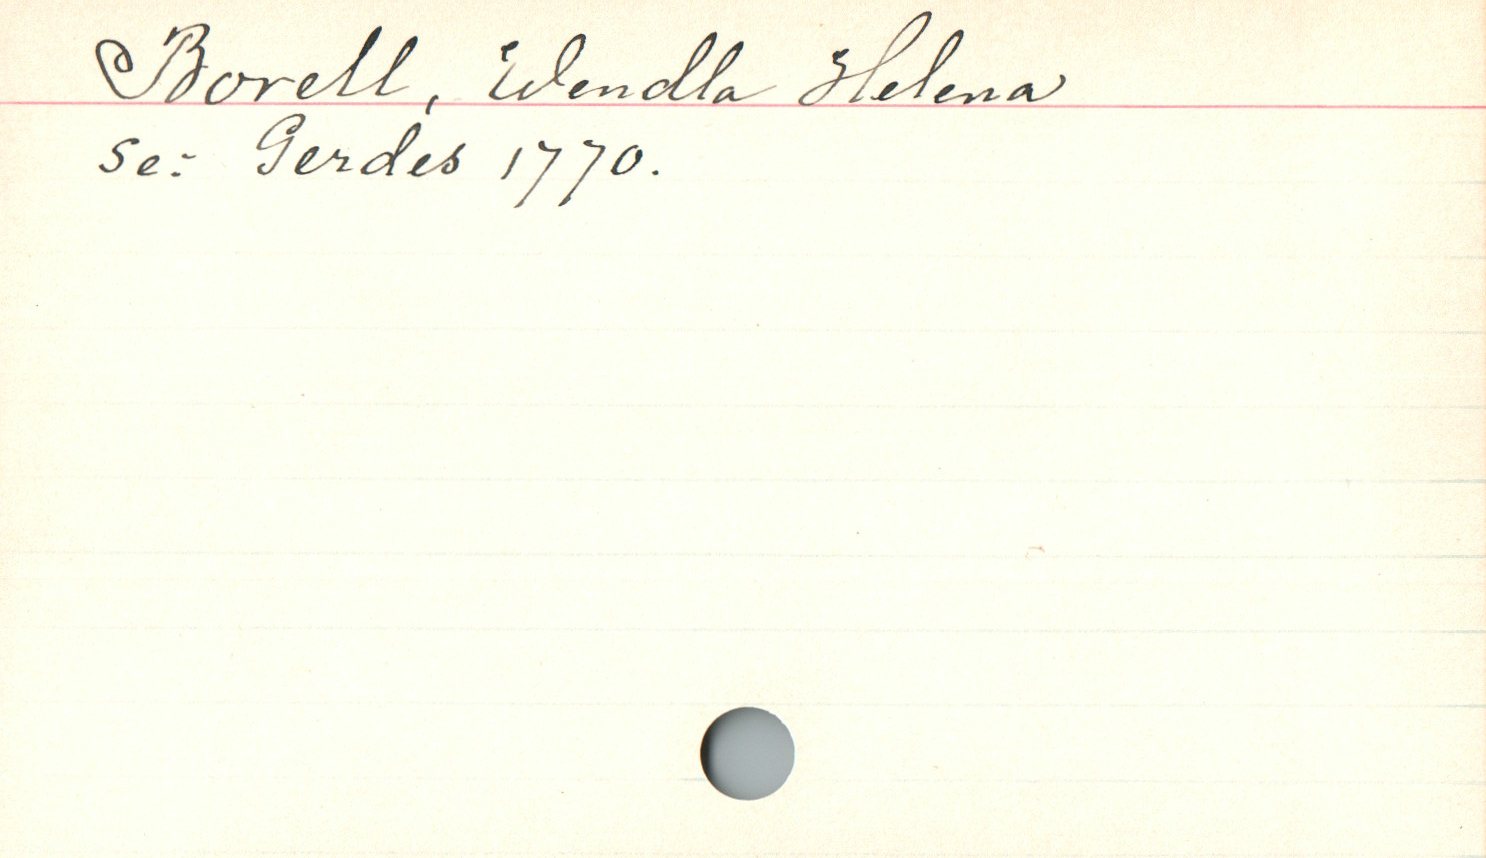 Borell, Wendla Helena
se: Gerdes 1770.